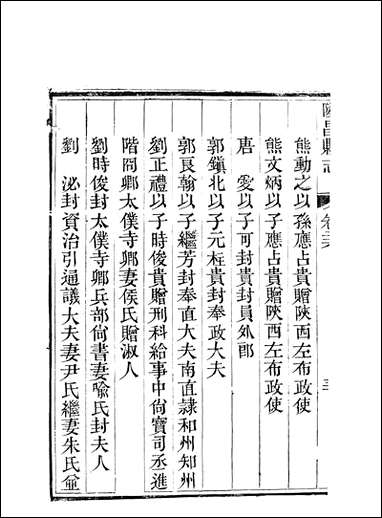 隆昌縣志
卷三
熊動之以孫應占貴贈陝西左布政使
熊文炳以子應占貴贈陝西左布政使
唐　愛以子可封貴封員外郎
郭鎭北以子元柱貴封奉政大夫
郭良翰以子繼芳封奉直大夫南直隸和州知州
劉正禮以子時俊貴贈刑科給事中尙寶司丞進
階冏卿太僕寺卿妻侯氏贈淑人
劉時俊封太僕寺卿兵部尙書妻喩氏封夫人
劉　泌封資治引通議大夫妻尹氏繼妻朱氏並